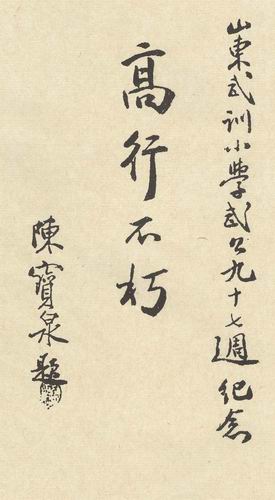 山東武訓小學武公九十七週紀念
高行不朽
陳寶泉題